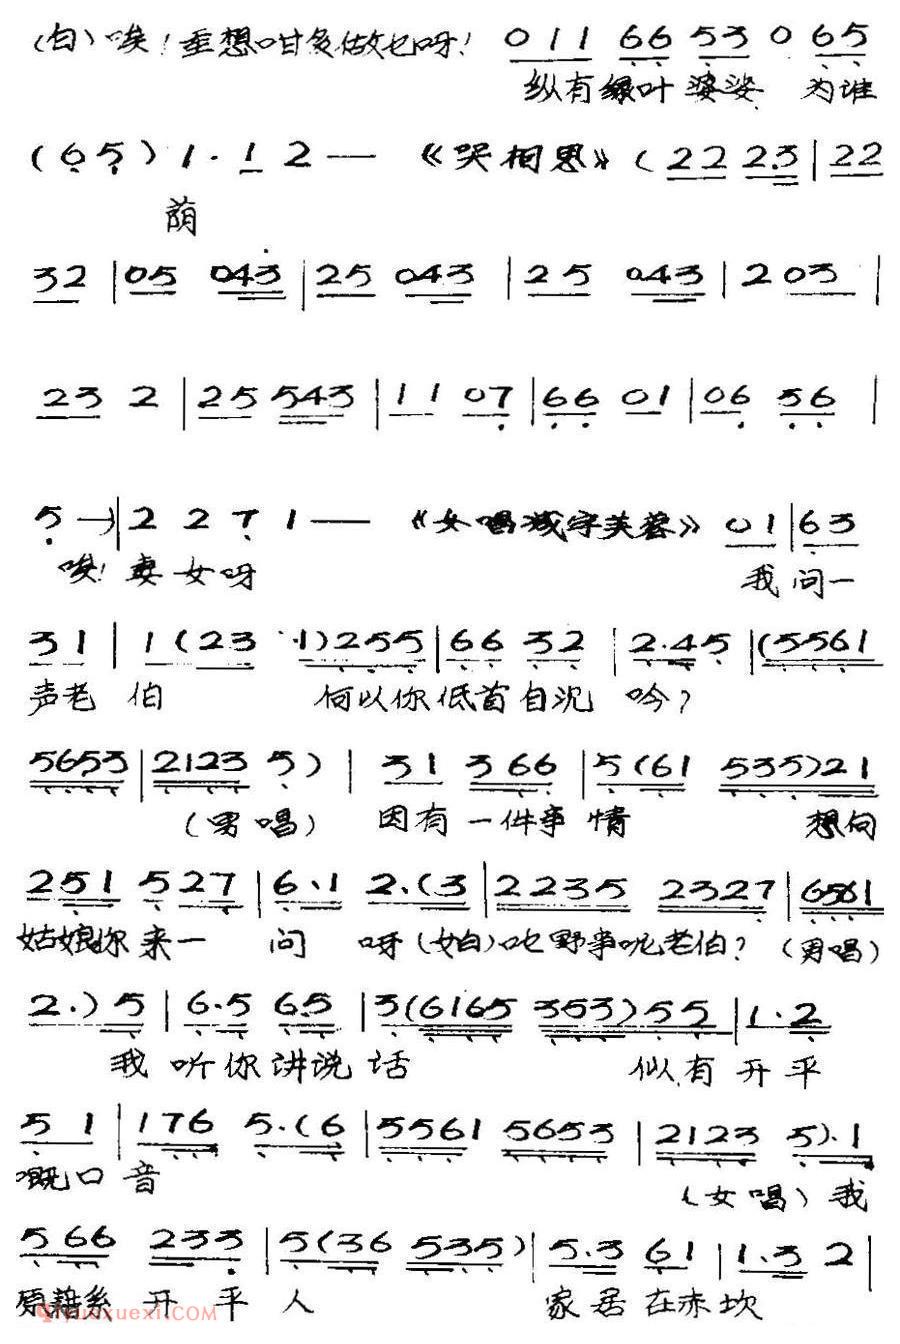 (白)唉!重想咁多做乜呀! 0 1 1 6 6 5 3 0 6 5
纵有绿叶婆娑 为谁
(6 5) 1 · 1 2 — 《哭相思》 (2 2 2 · 3 | 2 2
荫
3 2 | 0 5 0 4 3 | 2 5 0 4 3 | 2 5 0 4 3 | 2 0 3 |
2 3 2 | 2 5 5 4 3 | 1 1 0 7 | 6 6 0 1 | 0 6 5 6 |
5 —) | 2 2 7 1 — 《女唱减字芙蓉》 0 1 | 6 3
唉!妻女呀 我问一
3 1 | 1 (2 3 · 1) 2 5 5 | 6 6 3 2 | 2 · 4 5 | (5 5 6 1
声老伯 何以你低首自沉吟?
5 6 5 3 | 2 1 2 3 5) | 3 1 3 6 6 | 5 (6 1 5 3 5) 2 1
(男唱) 因有一件事情 想向
2 5 1 5 2 7 | 6 · 1 2 · (3 | 2 2 3 5 2 3 2 7 | 6 5 6 1
姑娘你来一问呀(女白)乜野事呢老伯?(男唱)
2 ·) 5 | 6 · 5 6 5 | 3 (6 1 6 5 3 5 3) 5 5 | 1 · 2
我听你讲说话 似有开平
5 1 | 1 7 6 5 · (6 | 5 5 6 1 5 6 5 3 | 2 1 2 3 5) · 1
嘅口音 (女唱)我
5 6 6 2 3 3 | 5 (3 6 5 3 5) | 5 · 3 6 1 | 1 · 3 2 |
原藉系开平人 家居在赤坎
yuexuexi.com